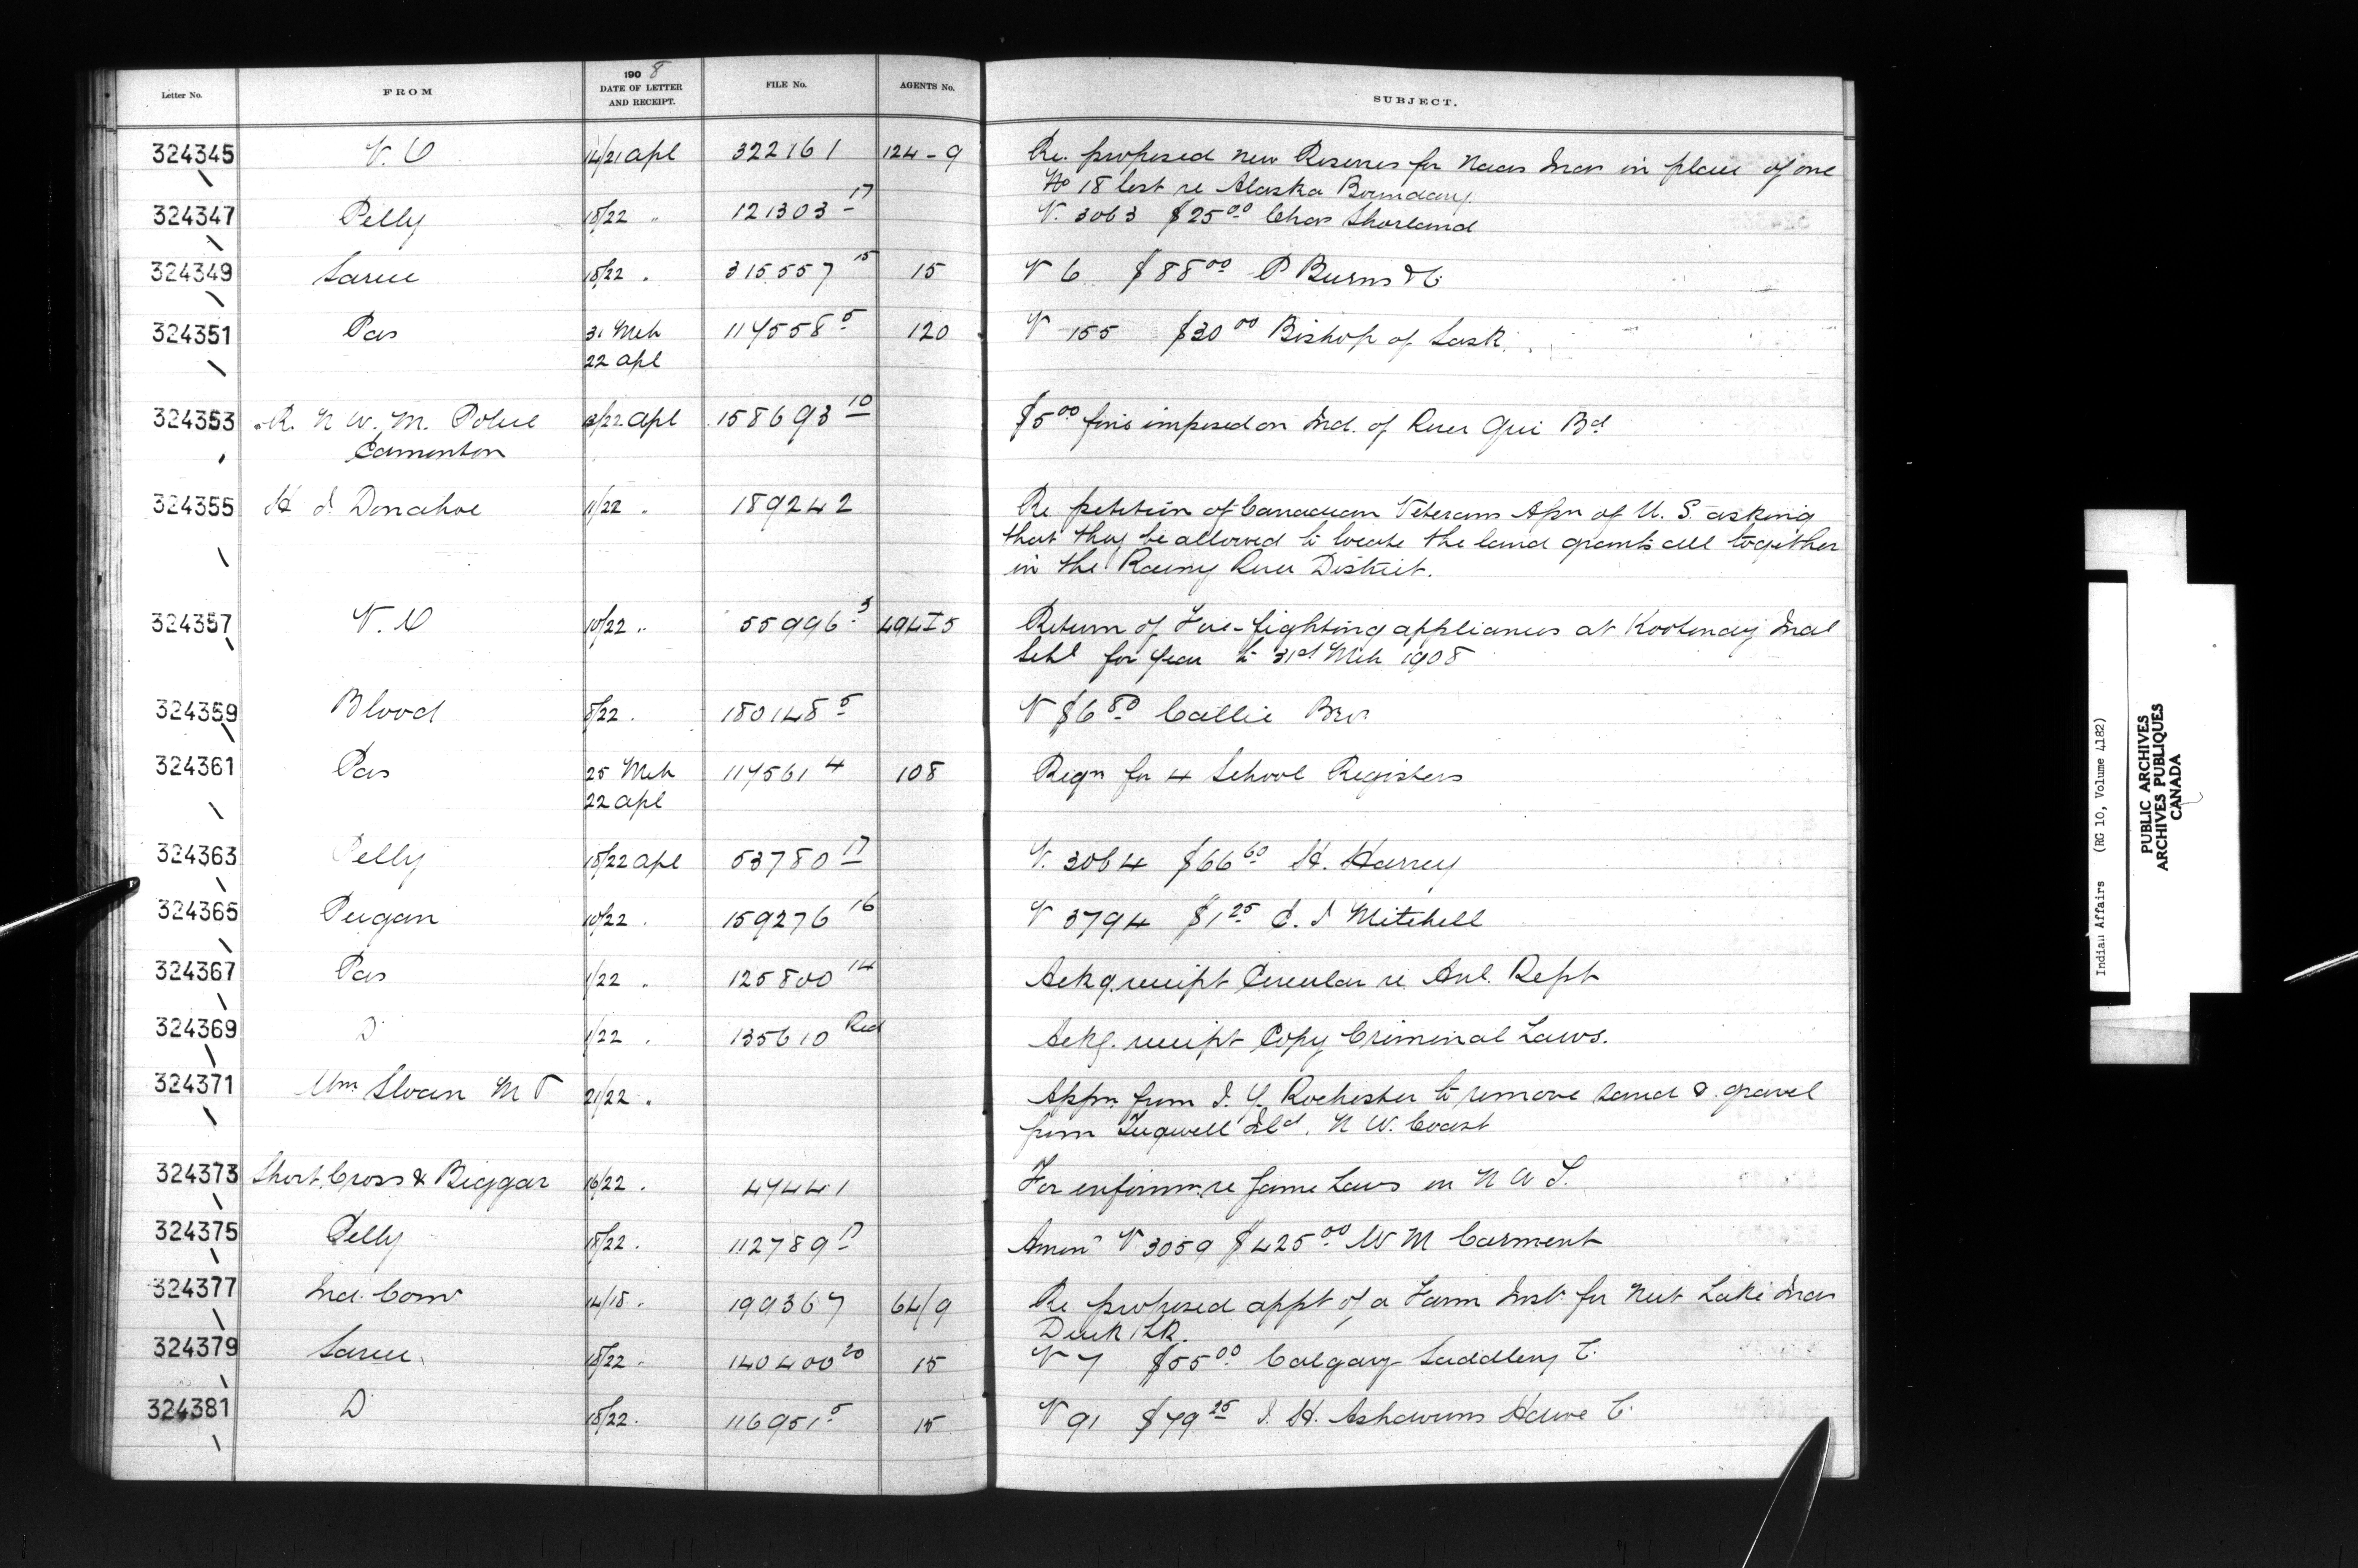 Letter No. FROM 1908 DATE OF LETTER AND RECEIPT. FILE No. AGENTS No. SUBJECT.
324345 V. O 14/21 Apl 322161 124-9 Re. proposed new Reserves for Naas Inds in place of one
No 18 lost re Alaska Boundary.
324347 Pelly 18/22 " 121303 17 V. 3063 $25.00 Chas Shorland
324349 Sarcee 18/22 . 315557 15 15 V 6 $88.00 P Burns & C.
324351 Pas 31 Mch 117558 5 120 V 155 $30.00 Bishop of Sask.
22 Apl
324353 R. N. W. M. Police /22 Apl 158693 10 $5.00 fine imposed on Ind. of Bd
Edmonton
324355 H J. Donahoe 11/22 . 189242 Re petition of Canadian Veterans Assn of U. S. asking
that they be allowed to locate the land grants all together
in the Rainy River District.
324357 V. O 10/22 " 55996 3 494 I 5 Return of Fire-fighting appliances at Kootenay Indl
Schl for year to 31st Mch 1908
324359 Blood 8/22 . 180148 5 V $6.80 Callie Bro
324361 Pas 25 Mch 117561 4 108 Reqn for 4 School Registers
22 Apl
324363 Pelly 18/22 Apl 53780 17 V. 3064 $66.60 H. Harvey
324365 Peigan 10/22 . 159276 16 V 3794 $1.25 E. J Mitchell
324367 Pas 1/22 . 125800 14 Ackg. receipt Circular re Anl. Rept
324369 D 1/22 . 135610 Red Ackg. receipt Copy Criminal Laws.
324371 Wm. Sloan M P 21/22 . Appn. from J. Y. Rochester to remove sand & gravel
from Tugwell Isld. N W. Coast
324373 Short, Cross & Biggar 16/22 . 47441 For informn. re Game Laws in N W T.
324375 Pelly 18/22 . 112789 17 V 3059 $425.00 W M Carment
324377 Ind. Comr 14/18 . 199367 64/9 Re proposed appt of a Farm Inst. for Nut Lake Inds
Duck Lk.
324379 Sarcee 18/22 . 140400 20 15 V 7 $55.00 Calgary Saddlery C.
324381 D 18/22 . 116951 5 15 V 91 $79.25 J. H. Ashdowns Hdwe C.
Indian Affairs (RG 10, Volume 4182)
PUBLIC ARCHIVES
ARCHIVES PUBLIQUES
CANADA